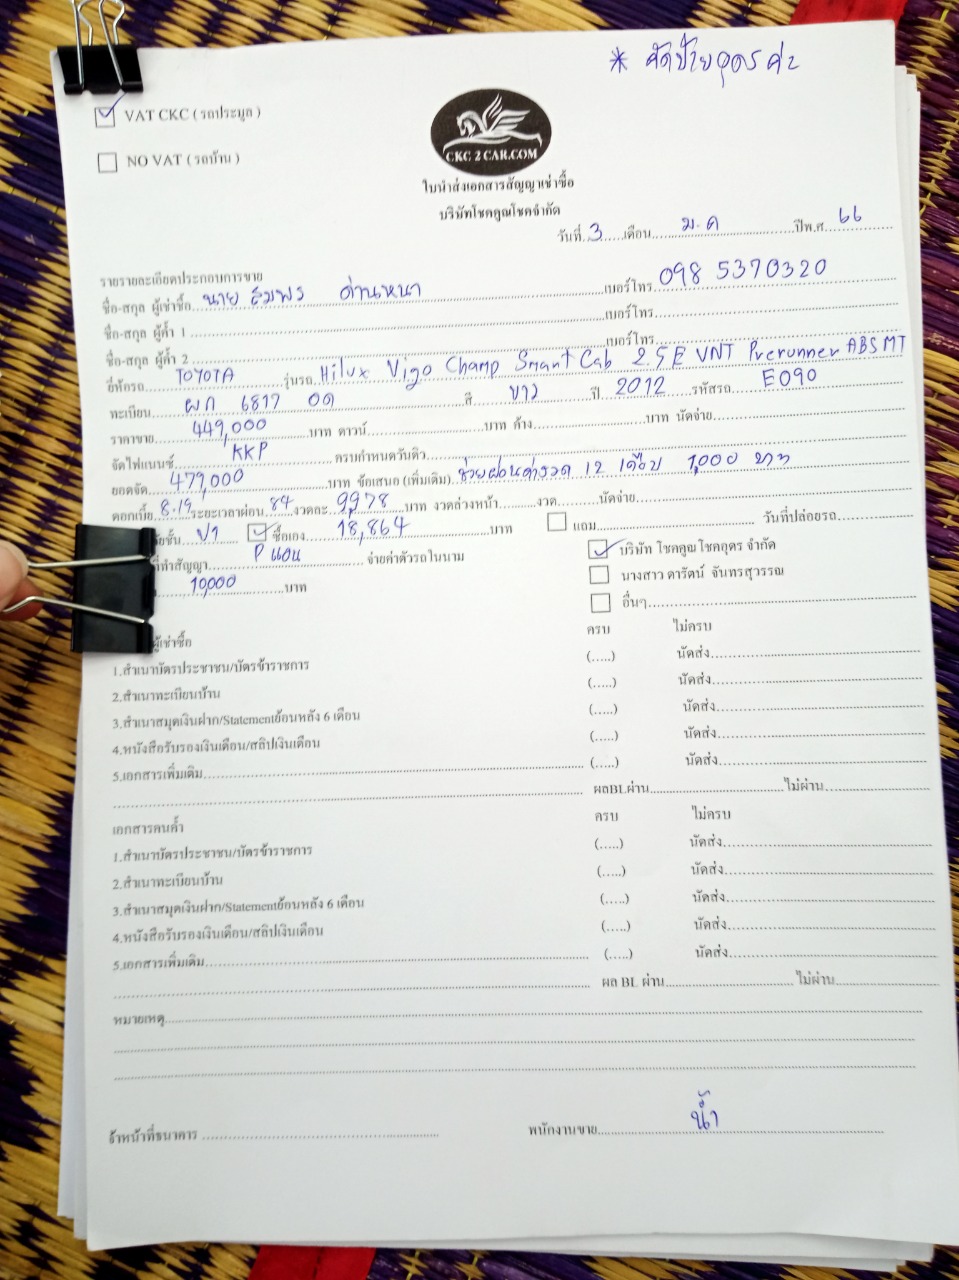 * คัดป้ายอุดรค่ะ
VAT CKC ( รถประมูล )
NO VAT ( รถบ้าน )
CKC 2 CAR.COM
ใบนำส่งเอกสารสัญญาเช่าซื้อ
บริษัทโชคคูณโชคจำกัด
วันที่..3......เดือน......ม.ค..................ปีพ.ศ...66............
รายรายละเอียดประกอบการขาย
ชื่อ-สกุล ผู้เช่าซื้อ..นาย ด่านหนา..........เบอร์โทร..098 5370320
ชื่อ-สกุล ผู้ค้ำ 1..........เบอร์โทร..........
ชื่อ-สกุล ผู้ค้ำ 2..........เบอร์โทร..........
ยี่ห้อรถ....TOYOTA.......รุ่นรถ..Hilux Vigo Champ Smart Cab 2.5 E VNT Prerunner ABS MT
ทะเบียน......ผก 6817 อด..........สี......ขาว........ปี...2012.......รหัสรถ......E090......
ราคาขาย........449,000........บาท ดาวน์..........บาท ค้าง..........บาท นัดจ่าย..........
จัดไฟแนนซ์........KKP..........ครบกำหนดวันดิว..........
ยอดจัด...479,000..........บาท ข้อเสนอ (เพิ่มเติม) ช่วยผ่อนค่างวด 12 เดือน 1,000 บาท
ดอกเบี้ย..8.19..ระยะเวลาผ่อน..84..งวดละ...9,978...บาท งวดล่วงหน้า..........งวด..........นัดจ่าย..........
ยชั้น....ป1.... ซื้อเอง.......18,864..........บาท แถม.......... วันที่ปล่อยรถ..........
ที่ทำสัญญา........P แอน..........จ่ายค่าตัวรถในนาม บริษัท โชคคูณโชคอุดร จำกัด
10,000..........บาท นางสาว ดารัตน์ จันทรสุวรรณ
อื่นๆ..........
ผู้เช่าซื้อ ครบ ไม่ครบ
1.สำเนาบัตรประชาชน/บัตรข้าราชการ (.....) นัดส่ง..........
2.สำเนาทะเบียนบ้าน (.....) นัดส่ง..........
3.สำเนาสมุดเงินฝาก/Statementย้อนหลัง 6 เดือน (.....) นัดส่ง..........
4.หนังสือรับรองเงินเดือน/สลิปเงินเดือน (.....) นัดส่ง..........
5.เอกสารเพิ่มเติม.......... (.....) นัดส่ง..........
.......... ผลBLผ่าน..........ไม่ผ่าน..........
เอกสารคนค้ำ ครบ ไม่ครบ
1.สำเนาบัตรประชาชน/บัตรข้าราชการ (.....) นัดส่ง..........
2.สำเนาทะเบียนบ้าน (.....) นัดส่ง..........
3.สำเนาสมุดเงินฝาก/Statementย้อนหลัง 6 เดือน (.....) นัดส่ง..........
4.หนังสือรับรองเงินเดือน/สลิปเงินเดือน (.....) นัดส่ง..........
5.เอกสารเพิ่มเติม.......... (.....) นัดส่ง..........
.......... ผล BL ผ่าน.......... ไม่ผ่าน..........
หมายเหตุ..........
จ้าหน้าที่ธนาคาร .......... พนักงานขาย..........น้ำ..........